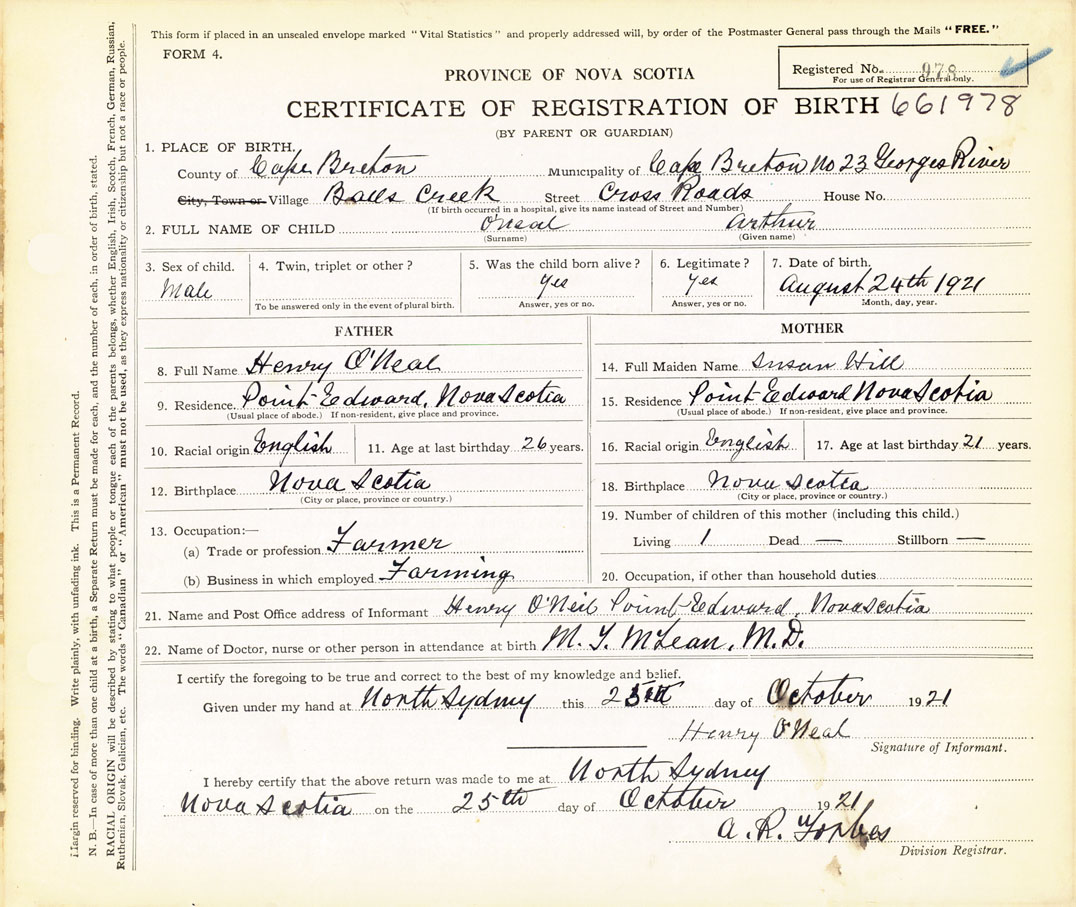 This form if placed in an unsealed envelope marked "Vital Statistics" and properly addressed will, by order of the Postmaster General pass through the Mails "FREE."
FORM 4.
Registered No. 978
For use of Registrar General only.
PROVINCE OF NOVA SCOTIA
CERTIFICATE OF REGISTRATION OF BIRTH 661978
(BY PARENT OR GUARDIAN)
1. PLACE OF BIRTH,
County of Cape Breton Municipality of Cape Breton No 23 Georges River
City, Town or Village Balls Creek Street Cross Roads House No.
(If birth occurred in a hospital, give its name instead of Street and Number)
2. FULL NAME OF CHILD O'Neal Arthur
(Surname) (Given name)
3. Sex of child. 4. Twin, triplet or other? 5. Was the child born alive? 6. Legitimate? 7. Date of birth.
Male Yes Yes August 24th 1921
To be answered only in the event of plural birth. Answer, yes or no. Answer, yes or no. Month, day, year.
FATHER
8. Full Name Henry O'Neal
9. Residence. Point Edward, Nova Scotia
(Usual place of abode.) If non-resident, give place and province.
10. Racial origin English 11. Age at last birthday 26 years.
12. Birthplace Nova Scotia
(City or place, province or country.)
13. Occupation:—
(a) Trade or profession Farmer
(b) Business in which employed Farming
MOTHER
14. Full Maiden Name Susan Hill
15. Residence Point Edward Nova Scotia
(Usual place of abode.) If non-resident, give place and province.
16. Racial origin English 17. Age at last birthday 21 years.
18. Birthplace Nova Scotia
(City or place, province or country.)
19. Number of children of this mother (including this child.)
Living 1 Dead — Stillborn —
20. Occupation, if other than household duties
21. Name and Post Office address of Informant Henry O'Neil Point Edward, Nova Scotia
22. Name of Doctor, nurse or other person in attendance at birth M. T. McLean, M.D.
I certify the foregoing to be true and correct to the best of my knowledge and belief.
Given under my hand at North Sydney this 25th day of October 1921
Henry O'Neal
Signature of Informant.
I hereby certify that the above return was made to me at North Sydney
Nova Scotia on the 25th day of October 1921
A. R. Forbes
Division Registrar.
Margin reserved for binding. Write plainly, with unfading ink. This is a Permanent Record.
N. B.—In case of more than one child at a birth, a Separate Return must be made for each, and the number of each, in order of birth, stated.
RACIAL ORIGIN will be described by stating to what people or tongue each of the parents belongs, whether English, Irish, Scotch, French, German, Russian,
Ruthenian, Slovak, Galician, etc. The words "Canadian" or "American" must not be used, as they express nationality or citizenship but not a race or people.